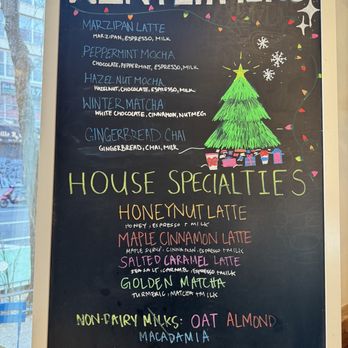 MARZIPAN LATTE
MARZIPAN, ESPRESSO, MILK
PEPPERMINT MOCHA
CHOCOLATE, PEPPERMINT, ESPRESSO, MILK
HAZELNUT MOCHA
HAZELNUT, CHOCOLATE, ESPRESSO, MILK
WINTER MATCHA
WHITE CHOCOLATE, CINNAMON, NUTMEG
GINGERBREAD CHAI
GINGERBREAD, CHAI, MILK
HOUSE SPECIALTIES
HONEYNUT LATTE
HONEY, ESPRESSO + MILK
MAPLE CINNAMON LATTE
MAPLE SYRUP, CINNAMON, ESPRESSO + MILK
SALTED CARAMEL LATTE
SEA SALT, CARAMEL, ESPRESSO + MILK
GOLDEN MATCHA
TURMERIC, MATCHA + MILK
NON-DAIRY MILKS: OAT ALMOND
MACADAMIA